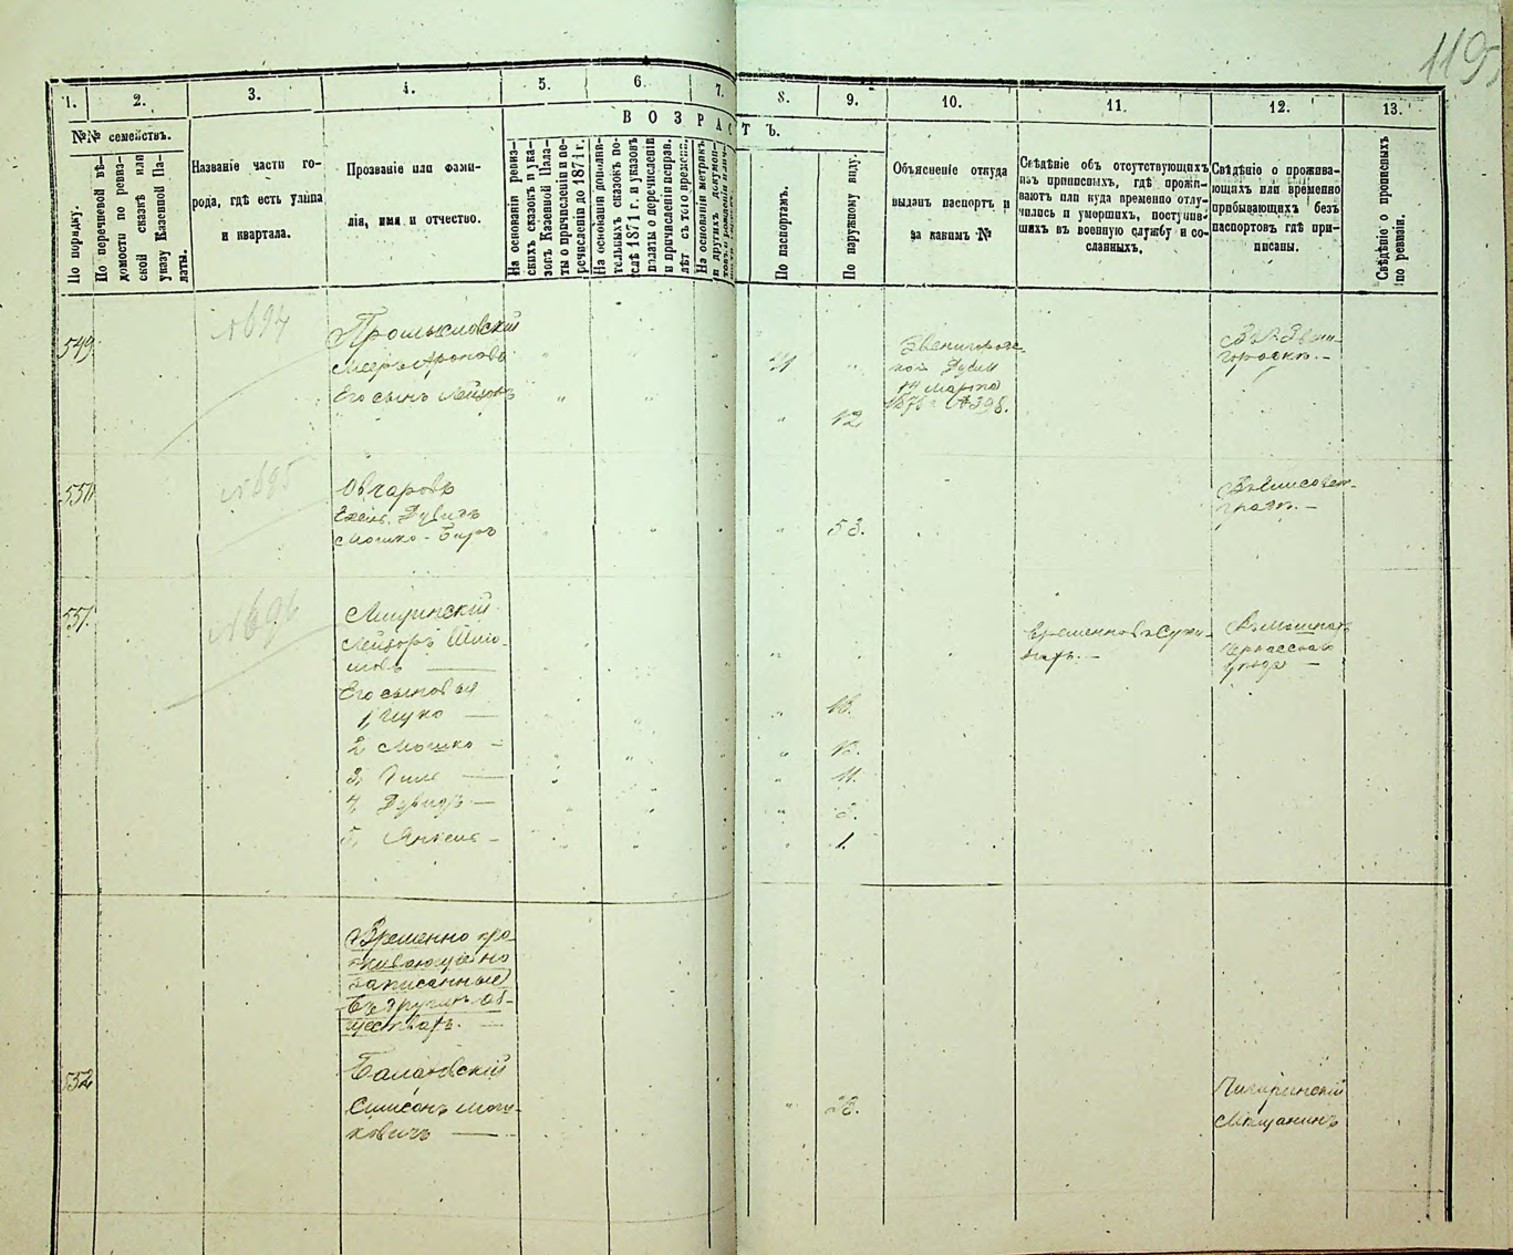 1195
1. 2. 3. 4. 5. 6. 7. 8. 9. 10. 11. 12. 13.
№№ семействъ.
ВОЗРАСТЪ.
По порядку.
По перечневой вѣ-
домости по ревиз-
ской сказкѣ или
указу Казенной Па-
латы.
Названіе части го-
рода, гдѣ есть улица
и квартала.
Прозваніе или фами-
лія, имя и отчество.
На основаніи ревиз-
скихъ сказокъ и ука-
зовъ Казенной Пала-
ты о причисленіи и пе-
речисленіи до 1871 г.
На основаніи дополни-
тельныхъ сказокъ по-
слѣ 1871 г. и указовъ
палаты о перечисленіи
и причисленіи исправ.
лѣт съ того времени.
На основаніи метрикъ
и другихъ докумен-
По паспортамъ.
По наружному виду.
Объясненіе откуда
выданъ паспортъ и
за какимъ №
Свѣдѣніе объ отсутствующихъ
изъ приписныхъ, гдѣ прожи-
ваютъ или куда временно отлу-
чились и умершихъ, поступив-
шихъ въ военную службу и со-
сланныхъ.
Свѣдѣніе о прожива-
ющихъ или временно
прибывающихъ безъ
паспортовъ гдѣ при-
писаны.
Свѣдѣніе о прописныхъ
по ревизіи.
549
№694
Промысловскій
Мееръ Ароновъ
Его сынъ Лейзоръ
12
Звенигород-
кой Думы
14 Марта
1875 №398.
Въ Звени-
городкѣ.
550
№695
Овчаровъ
Дувидъ
Мошко-Беръ
53.
Въ Елисавет-
градѣ.
551.
№696
Лейзоръ Шмю-
левъ
Его сыновья
1,
2, Мошко
3,
4, Дувидъ
5, Янкель
11.
1.
Временно
Черкасскаго
уѣзда
Временно про-
живающіе но
записанные
въ другихъ об-
ществахъ.
552
Балановскій
Симсонъ Мош-
ковичъ
28.
Чигиринскій
Мѣщанинъ